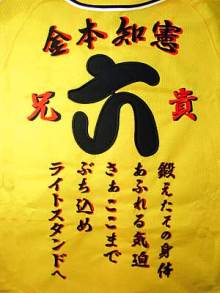 金本知憲
六
兄貴
鍛えたその身体
あふれる気迫
さぁここまで
ぶち込め
ライトスタンドへ